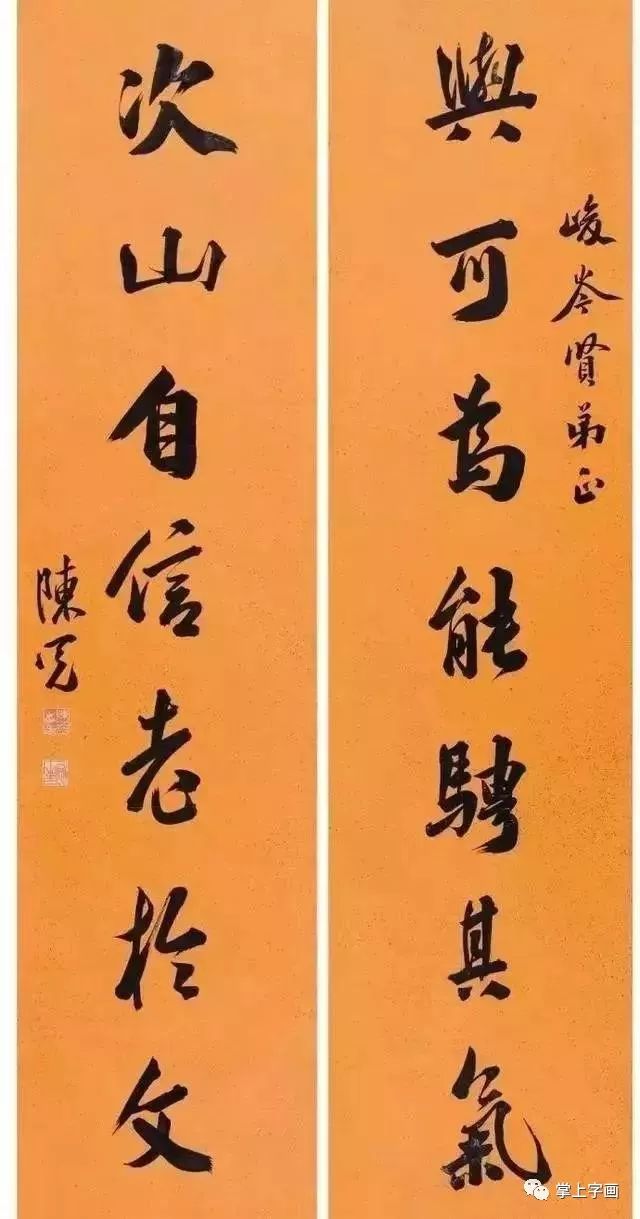 峻岑賢弟正
與可為能騁其氣
次山自信老於文
陳冕
掌上字画